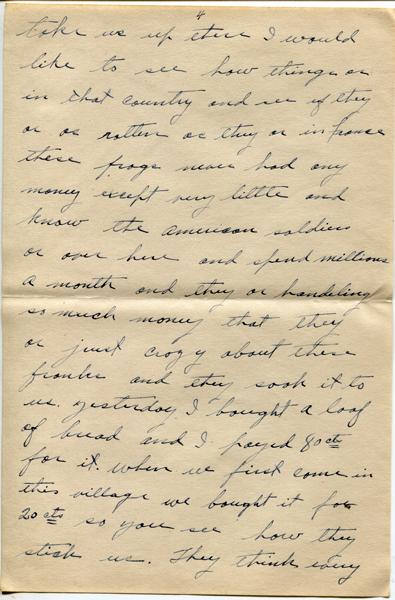 4
take us up there I would
like to see how things or
in that country and see if they
or as rotten as they or in france
these frogs never had any
money except very little and
know the american soldiers
or over here and spend millions
a month and they or handeling
so much money that they
or just crazy about there
franks and they soak it to
us. yesterday I bought a loaf
of bread and I payed 80 cts
for it. when we first come in
this village we bought it for
20 cts so you see how they
stick us. They think every